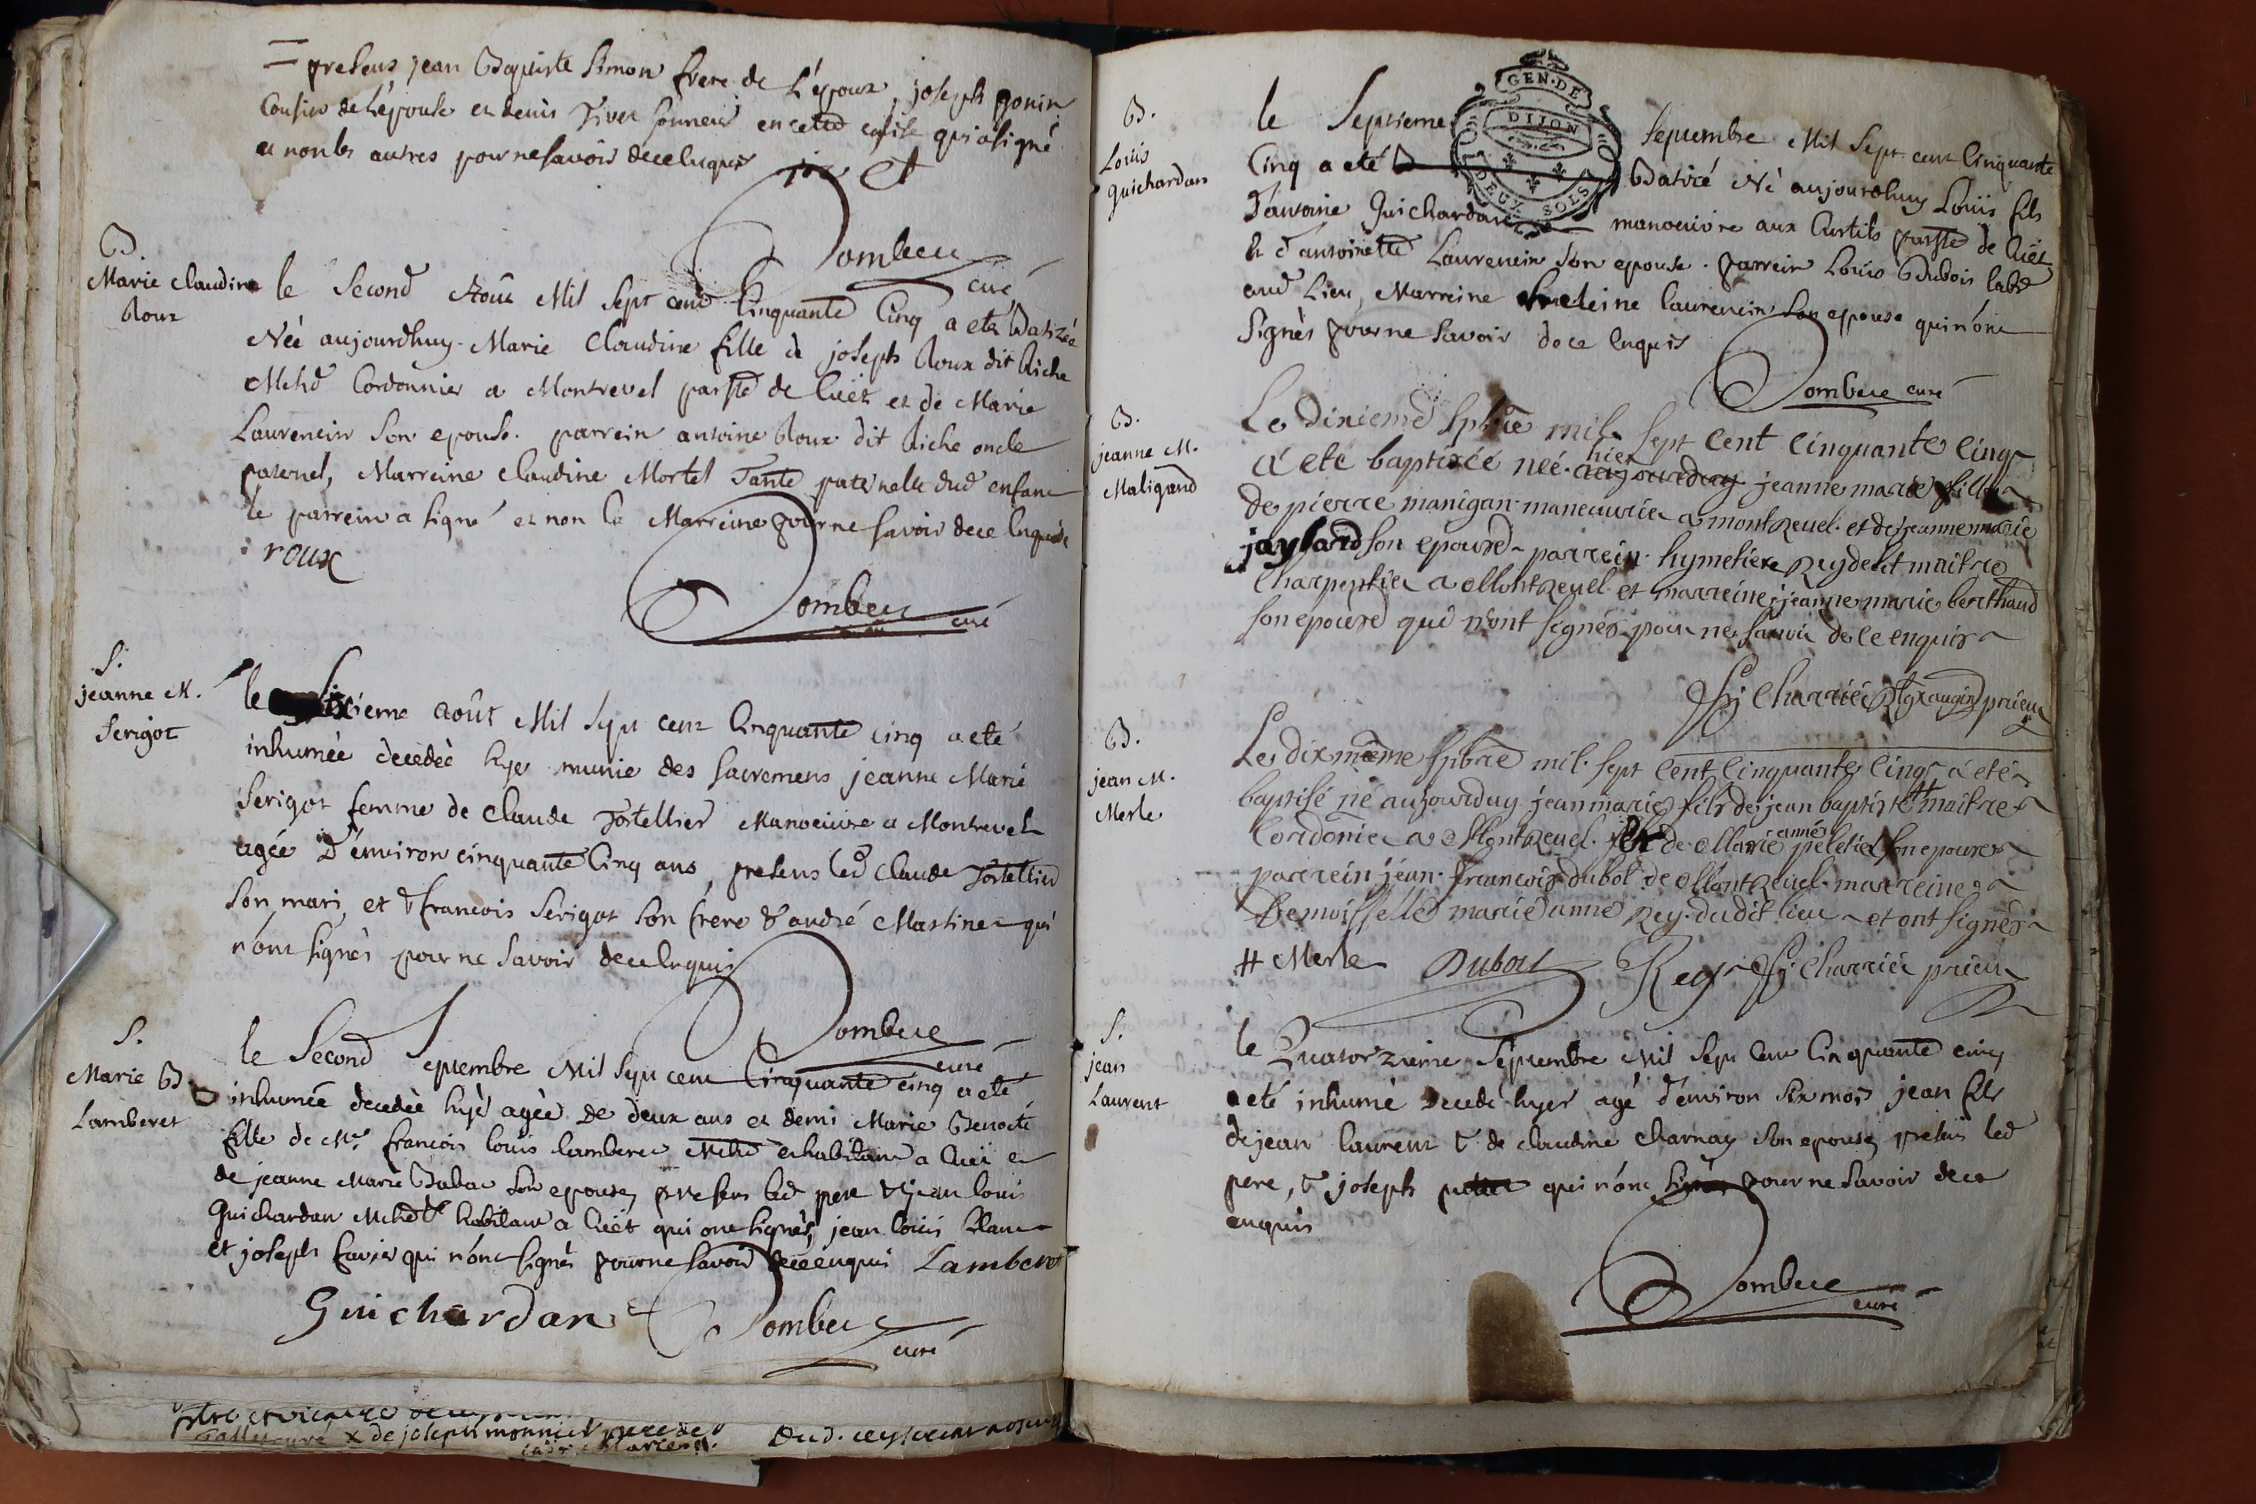 presens jean Baptiste Simon frere de L'épour, joseph gonin
Cousin de L'épouse et denis Tiver sonneur en cette esglise qui a signé
et non les autres pour ne savoir de ce Enquis
Dombeu
curé
B.
Marie Claudine
Roux
le Second Aout Mil Sept cent Cinquante Cinq a eté Batizée
Née aujourdhuy Marie Claudine fille de joseph Roux dit Riche
Mchd Cordonnier a Montrevel parsse de Cuët et de Marie
Laurencin Son epouse. parrein antoine Roux dit Riche oncle
paternel, Marreine Claudine Mortel Tante paternelle dud enfant
le parrein a signé et non la Marreine pour ne savoir de ce Enquise
roux
Dombeu
curé
S.
jeanne M.
Serigot
le Sixieme août Mil Sept cent Cinquante cinq a eté
inhumée decedée hyer munie des sacremens jeanne Marie
Serigot femme de Claude Tortellier Manoeuvre a Montrevel
agée D'environ cinquante Cinq ans, presens led Claude Tortellier
Son mari, et francois Serigot Son frere & andré Martinet qui
n'ont signés pour ne savoir de ce Enquis
Dombeu
curé
S.
Marie B
Lamberet
le Second Septembre Mil Sept cent Cinquante cinq a eté
inhumée decedée hyer agée De deux ans et demi Marie Benoite
fille de Mre francois louis Lamberet Mchd habitant a Cuët et
de jeanne Marie Babad Son epouse, presens led pere & jean louis
Guichardan Mchd habitant a Cuët qui ont signés, jean louis Blanc
et joseph favier qui n'ont signés pour ne savoir de ce enquis Lamberet
Guichardan Dombeu
curé
GEN. DE
DIJON
DEUX SOLS
B.
Louis
Guichardan
le Septieme Septembre Mil Sept cent Cinquante
Cinq a eté Batizé Né aujourdhuy Louis fils
D'antoine Guichardan manoeuvre aux Curtils parsse de Cuët
& d'antoinette Laurencin Son epouse. parrein Louis Dubois labr
aud Lieu, Marreine laurencin son epouse qui n'ont
Signés pour ne savoir de ce Enquis
Dombeu curé
B.
jeanne M.
Maligand
Le Dixieme Spbre mil Sept Cent Cinquante Cinq
a eté baptizée née hier jeanne marie fille
de pierre manigan maneuvrier a montrevel et de jeanne marie
jaylard son epouse parrein hymetiere Reydelet maitre
Charpentier a Montrevel et marreine jeanne marie berthaud
son epouse qui n'ont signés pour ne savoir de ce enquis
Charrier prieur
B.
jean M.
Merle
Le dixmême Spbre mil sept Cent Cinquante Cinq a eté
baptisé né aujourduy jean marie fils de jean baptiste # maitre
Cordonnier a Montrevel de Marie anne peletier son epouse
parrein jean francois dubot de Montrevel marreine
Demoisselle marie anne Rey dudit lieu et ont signés
# Merle Dubost Rey Charrier prieur
S.
jean
Laurent
le Quatorzieme Septembre Mil Sept Cent Cinquante cinq
a eté inhumé decedé hyer agé d'environ six mois jean fils
de jean laurent & de claudine Charnay son epouse, presens led
pere, & joseph qui n'ont signés pour ne savoir de ce
enquis
Dombeu
curé